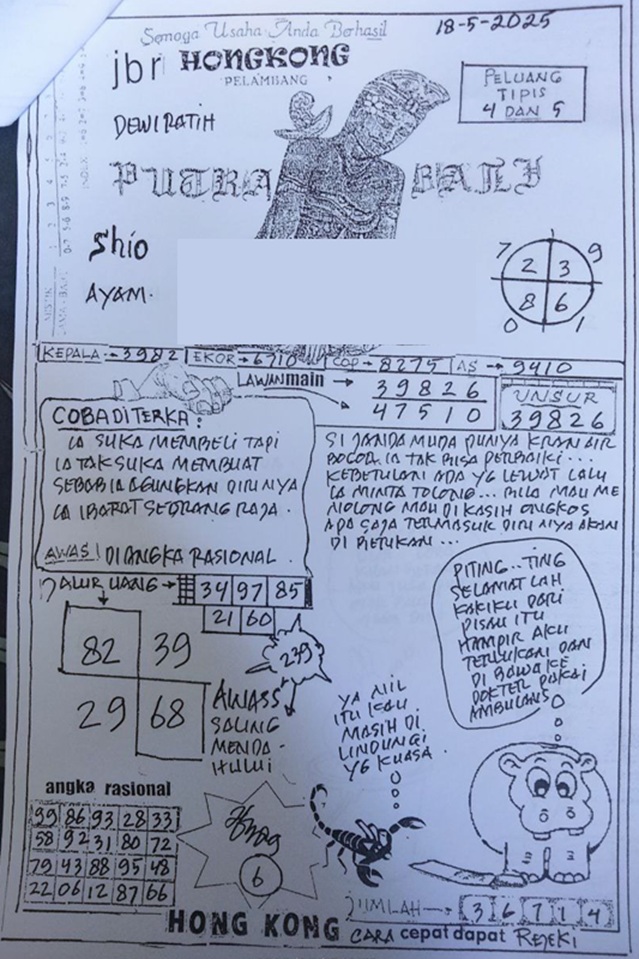 Semoga Usaha Anda Berhasil
18-5-2025
jbr HONGKONG
PELAMBANG
DEWI RATIH
PELUANG
TIPIS
4 DAN 5
PUTRA BALI
Shio
AYAM.
7 9
2 3
8 6
0 1
KEPALA → 3982 EKOR → 6710 COP → 8275 AS → 9410
LAWAN main → 39826
47510
UNSUR
39826
COBA DITERKA:
IA SUKA MEMBELI TAPI
IA TAK SUKA MEMBUAT
SEBAB IA AGUNGKAN DIRINYA
IA IBARAT SEORANG RAJA.
AWAS! DI ANGKA RASIONAL.
SI JANDA MUDA PUNYA KRAN AIR
BOCOR IA TAK BISA PERBAIKI...
KEBETULAN ADA YG LEWAT LALU
IA MINTA TOLONG... BILA MAU ME
NOLONG MAU DI KASIH ONGKOS
APA SAJA TERMASUK DIRINYA AKAN
DI BERIKAN...
ALUR UANG → 34 97 85
21 60
82 39
29 68
239
AWASS
SALING
MENDA-
HULUI
PITING... TING
SELAMATLAH
KAKIKU DARI
PISAU ITU
HAMPIR AKU
TERLUKAI DAN
DI BAWA KE
DOKTER PAKAI
AMBULANS
YA NIIL
ITU KAU
MASIH DI
LINDUNGI
YG KUASA.
angka rasional
99 86 93 28 33
58 92 31 80 72
79 43 88 95 48
22 06 12 87 66
6
JUMLAH → 3 6 7 1 4
HONG KONG CARA cepat dapat REJEKI